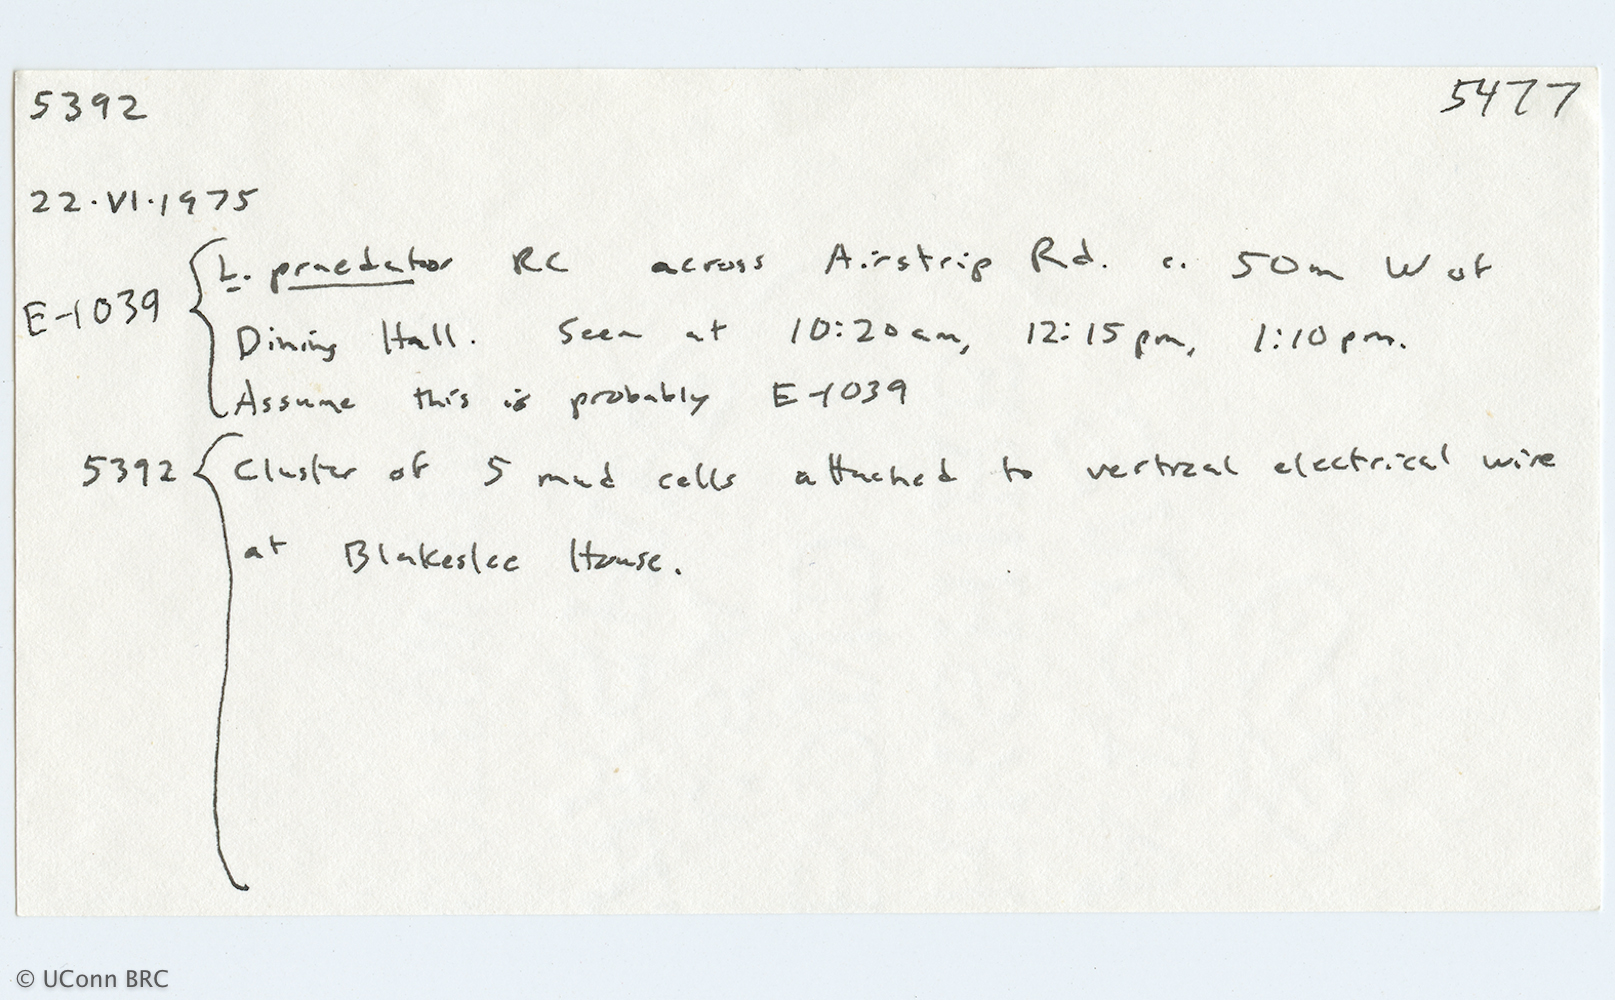 5392 5477
22·VI·1975
E-1039 { L. praedator RC across Airstrip Rd. c. 50m W of
Dining Hall. Seen at 10:20am, 12:15pm, 1:10pm.
Assume this is probably E-1039
5392 { Cluster of 5 mud cells attached to vertical electrical wire
at Blakeslee House.
© UConn BRC